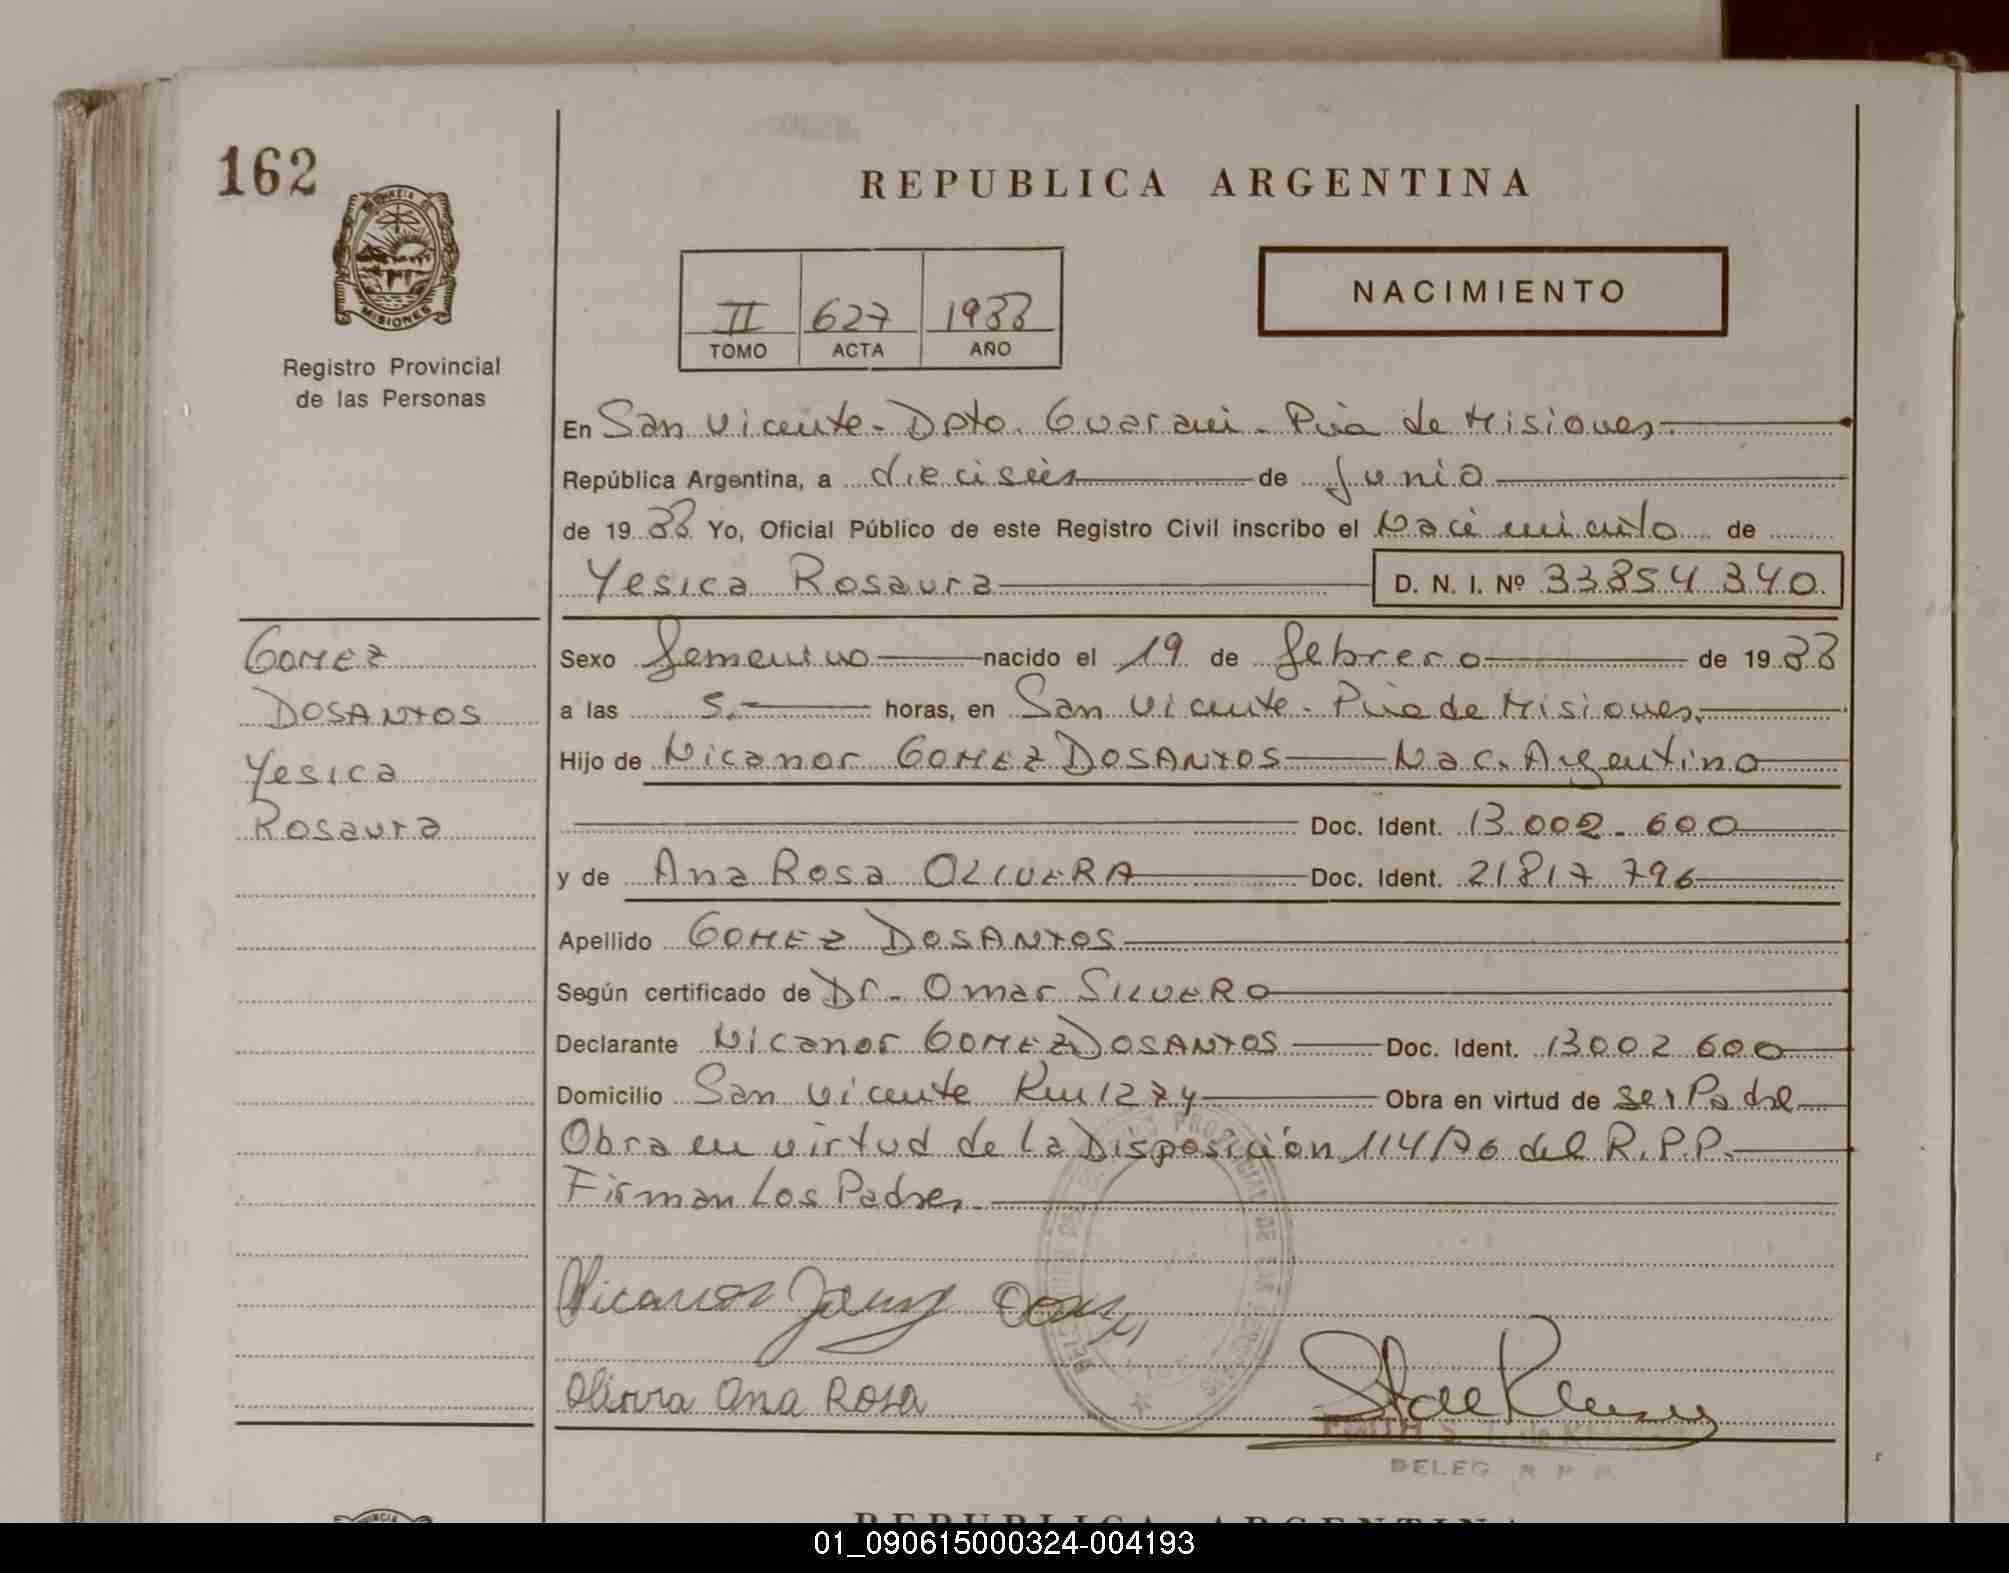 162
REPUBLICA ARGENTINA
PROVINCIA DE
MISIONES
Registro Provincial
de las Personas
NACIMIENTO
II 627 1988
TOMO ACTA AÑO
En San Vicente - Dpto. Guaraní - Pcia de Misiones
República Argentina, a dieciséis de Junio
de 19 88 Yo, Oficial Público de este Registro Civil inscribo el Nacimiento de
Yesica Rosaura D. N. I. Nº 33854340
Sexo femenino nacido el 19 de febrero de 19 88
a las 5. horas, en San Vicente - Pcia de Misiones
Hijo de Nicanor GOMEZ DOSANTOS Nac. Argentino
Doc. Ident. 13.002.600
y de Ana Rosa OLIVERA Doc. Ident. 21817796
Apellido GOMEZ DOSANTOS
Según certificado de Dr. Omar SILVERO
Declarante Nicanor GOMEZ DOSANTOS Doc. Ident. 13002600
Domicilio San Vicente Km 1274 Obra en virtud de ser Padre
Obra en virtud de la Disposición 114/76 del R.P.P.
Firman los Padres
GOMEZ
DOSANTOS
Yesica
Rosaura
Nicanor
Olivera Ana Rosa
DELEG. R P P
REPUBLICA ARGENTINA
01_090615000324-004193